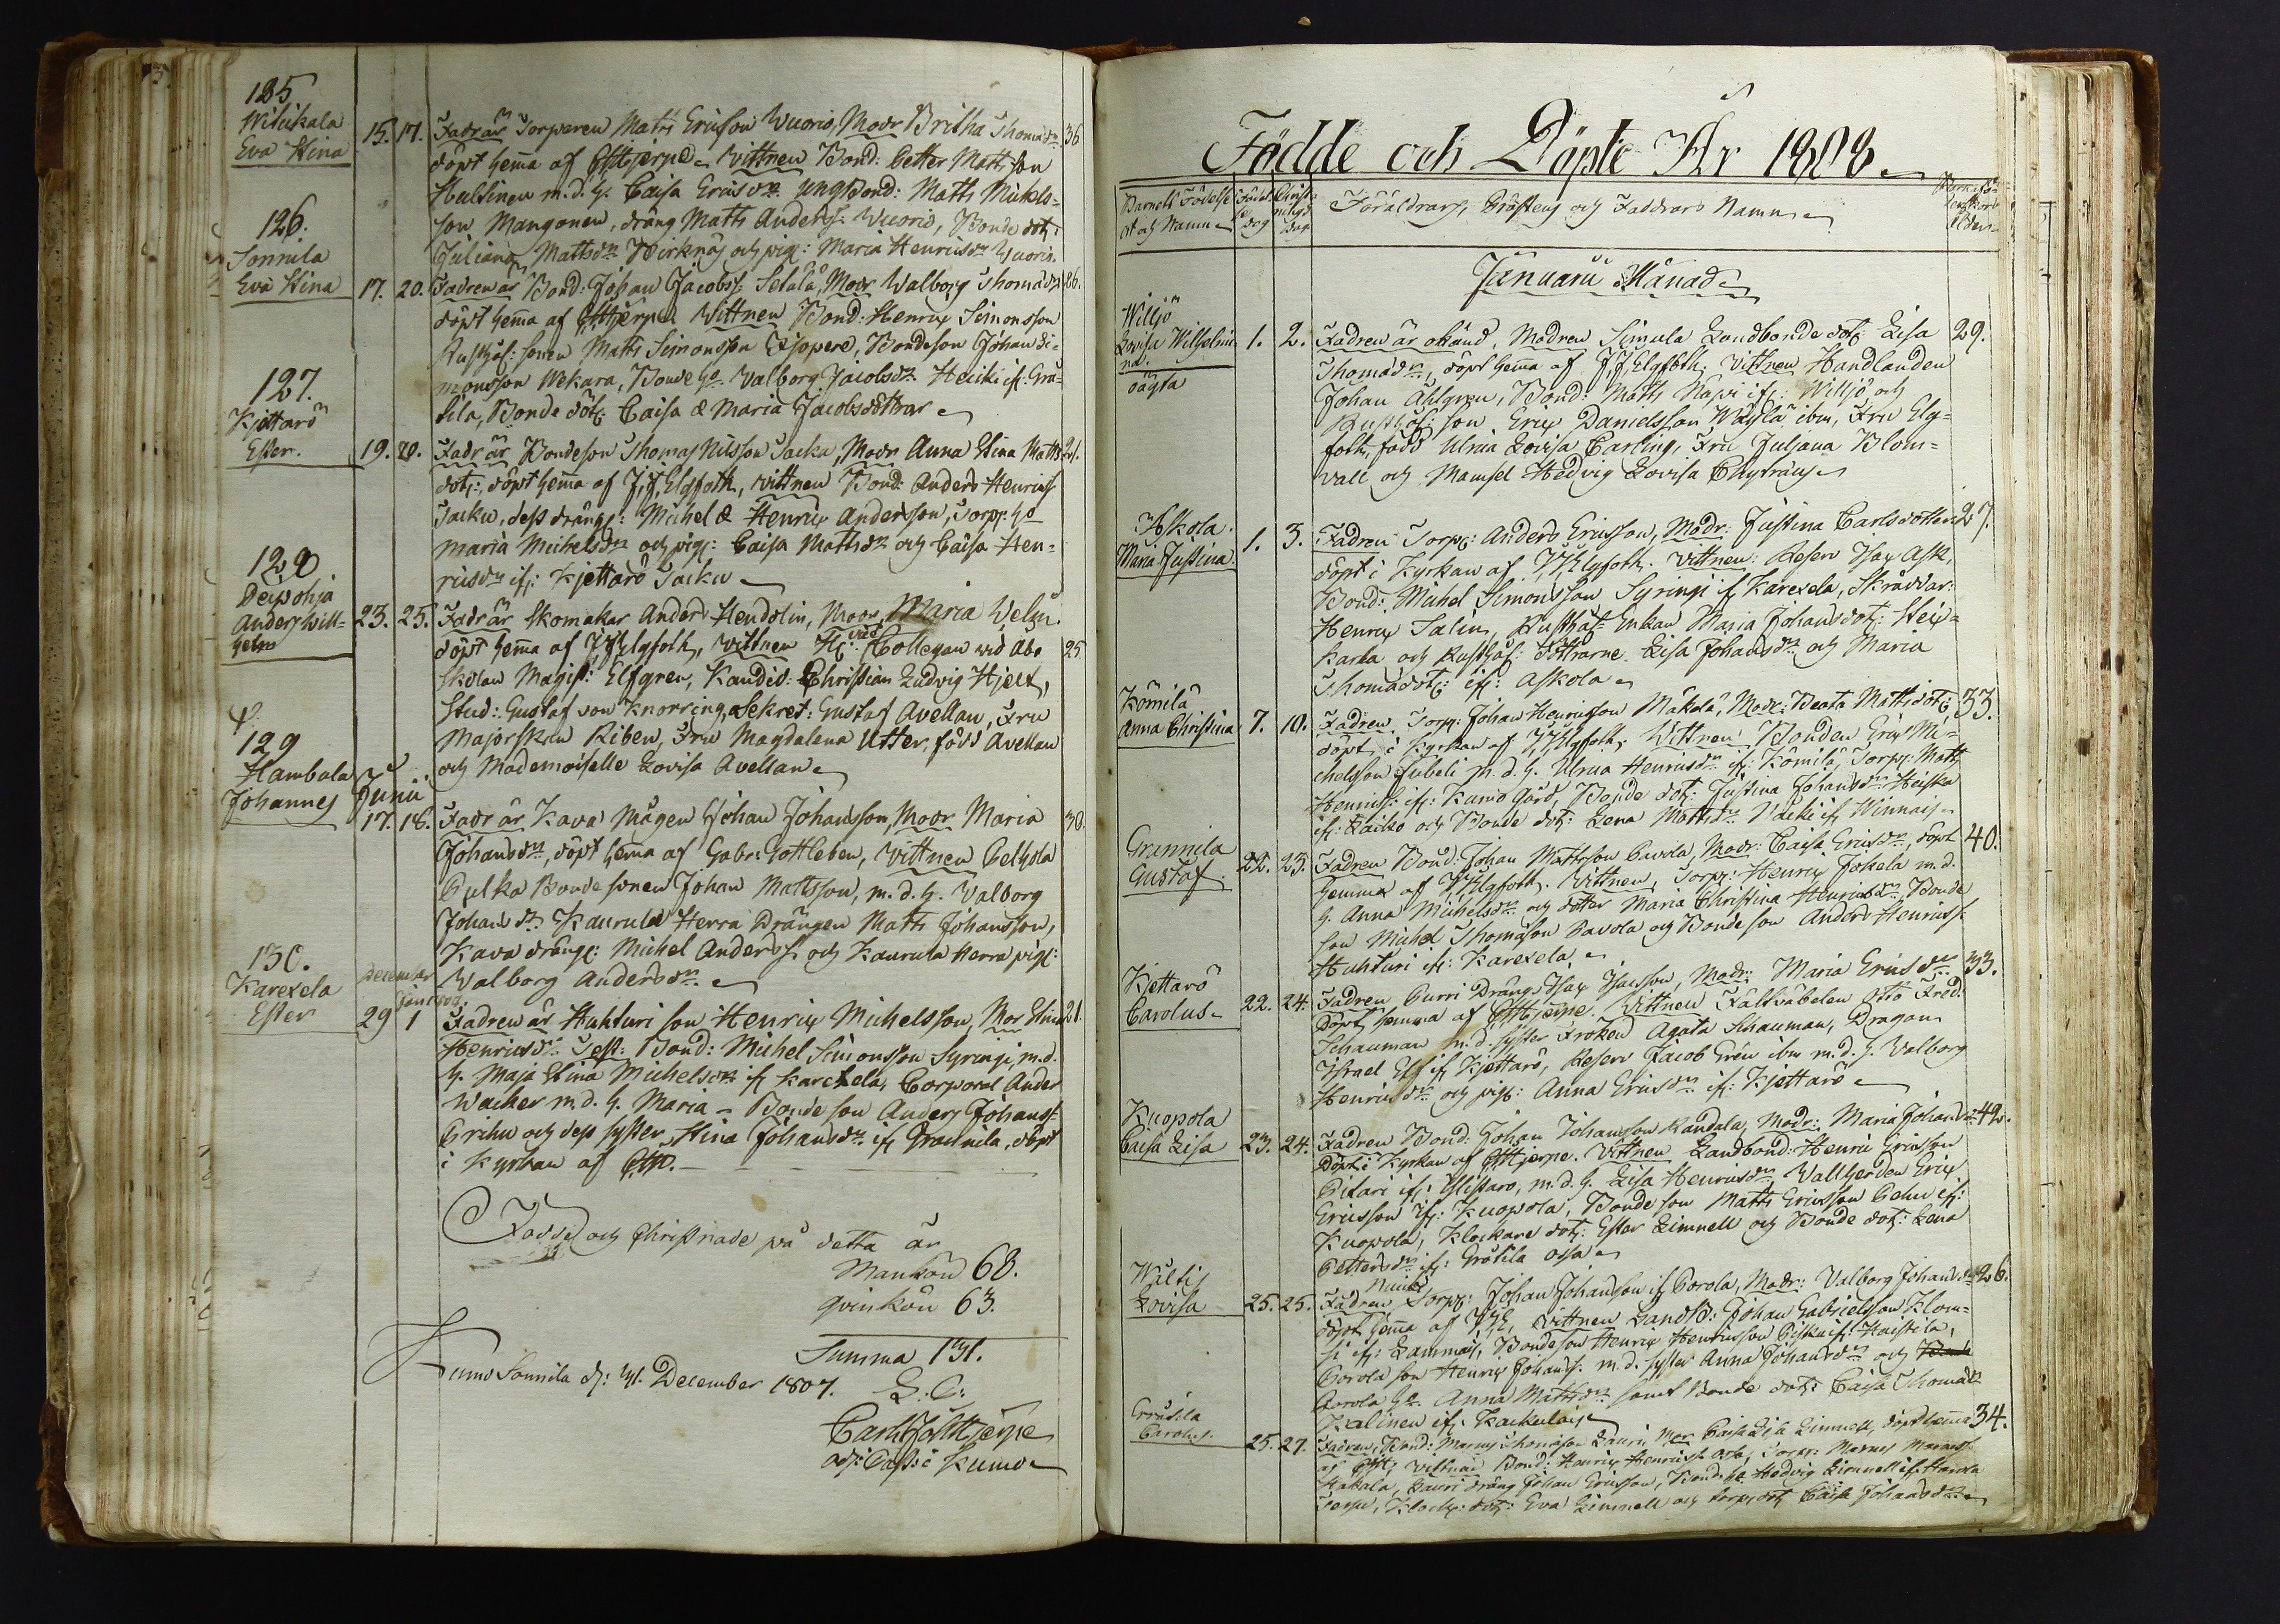 125
Witikala
Eva Stina
15. 17. Fadr är Torparen Matts Ericson Wuorio, Modr Britha Thomædr 36
döpt hema af CHjerpe. Vittnen Bond: Petter Matts son
Hultinen m. d. h. Caisa Ericsdr ungBond: Matts Mickels=
son Mangonen, dräng Matts Anderss: Wuorio, Bonde dotr:
Juliana Mattsdr Pirknäs och pig: Maria Henricsdr Wuorio.
126.
Sonnila
Eva Stina
17. 20. Fadren är Bond: Johan Jacobss: Setälä, Modr Walborg Thomædr 26.
döpt hema af CHjerpe. Vittnen Bond: Henrix Simonsson
Rusthål: sonen Matts Simonsson Äippere, Bondeson Johan Si=
monsson Wekara, Bonde ho Valborg Jacobsdr Heicki if. Grä=
tila, Bonde döt: Caisa & Maria Jacobsdöttrar
127.
Kjettarö
Ester.
19. 20. Fadr är Bondeson Thomas Nilsson Jacku, Modr Anna Stina Matts 21.
dotr:, döpt hema af J,J,Elgfoth, vittnen Bond: Anders Henricss
Jacku, dess dräng: Michel & Henrix Andersson, Torp: ho
Maria Michelsdr och pig: Caisa Mattsdr och Caisa Hen=
ricsdr if: Kjettarö Jacku
128
Peipohja
Anders Will=
helm
23. 25. Fadr är Skomakar Anders Hendolin, Modr Maria Welin.
döpt hema af JJElgfoth, vittnen H: Collegan vid Åbo 25
Skolan Magist: Elfgren, Kandid: Christian Ludvig Hjelt,
Stud: Gustaf von Knorring, Sekret: Gustaf Avellan, Fru
Majorskan Riben, Fru Magdalena Utter, född Avellan
och Mademoiselle Lovisa Avellan
129
Hambala
Johannes
Junii
17. 18. Fadr är Kava Mågen Johan Johansson, Modr Maria 30.
Johansdr, döpt hema af Gabr: Gottleben, Vittnen Pelhola
Pulka Bondesonen Johan Mattsson, m. d. h. Valborg
Johansdr Kaurula Herra Drängen Matts Johansson,
Kava dräng: Michel Anderss: och Kaurula Herra pig:
Walborg Andersdr
130.
Karexela
Ester
December
29 1 Fadren är Huhturi son Henrix Michelsson, Mor Stina 21.
Henricsdr Test: Bond: Michel Simonsson Syringi, m. d.
h. Maja Stina Michelsdr if Karexela, Corporal Ander
Wacker m. d. h. Maria – Bondeson Anders Johanss:
Prehn och dess syster Stina Johansdr if Grannila, döpt
i Kyrkan af CHj.
Födde och Christnade på detta år
Mankön 68.
Qvinkön 63.
Summa 131.
Kumo Sonnila d: 31. December 1807. L. C:
Carl J Hjerpe
adj: Past: i Kumo
Födde och Döpte År 1808.
Barnets Födelse Födel Christ:
ort och Namn se dag nings dag Föräldrars, Prästens och Faddrars Namn
Barnafö
derskans
Ålder
Januarii Månad
Wiljö
Lovisa Wilhelmi
na.
oägta
1. 2. Fadren är okänd, Modren Simula Landbonde dotr: Lisa 29.
Thomædr, döpt hema af J,J,Elgfoth, Vittnen Handlanden
Johan Ahlgren, Bond: Matts Näpi if: Willjö och
Rusthål: son Erix Danielsson Wäylä ibm, Fru Elg=
foth, född Ulrica Lovisa Carling, Fru Juliana Blom=
vall och Mamsel Hedvig Lovisa Chytræus
Askola.
Maria Justina
1. 3. Fadren Torp: Anders Ericsson, Modr: Justina Carlsdotter 27.
döpt i Kyrkan af JJElgfoth. Vittnen: Reserv Isax Ask,
Bond: Michel Simonsson Syringi if Karexela, Skräddar:
Henrix Salin, Rusthål: Enkan Maria Johansdotr: Steix=
karta och Rusthål: döttrarne Lisa Johansdr och Maria
Thomædotr: if: Askola
Kömilä
Anna Christina
7. 10. Fadren Torp: Johan Henricsson Mäkelä, Modr: Beata Mattsdotr: 33.
döpt i Kyrkan af JJElgfoth, Wittnen Bonden Erix Mi=
chelsson Jubeli m. d. h. Ulrica Henricsdr if: Kömilä, Torp: Matts
Henricss: if: Kumo Gård, Bonde dotr: Justina Johansdr Heiska
if: Laiko och Bonde dotr: Lena Mattsdr Väcki if Winnais
Grannila
Gustaf.
22. 23. Fadren Bond: Johan Mattsson Pavola, Modr: Caisa Ericsdr, döpt 40.
hemma af JJElgfoth. Vittnen, Torp: Henrix Jokela m. d.
h. Anna Michelsdr och dotter Maria Christina Henricsdr, Bonde
son Michel Thomasson Pavola och Bondeson Anders Henricss:
Huhturi if: Karexela
Kjettarö
Carolus
22. 24. Fadren Purri Dräng Isax Isacsson, Modr: Maria Ericsdr 33.
döpt hemma af CHjerpe. Vittnen Fältväbelen Otto Fred:
Schauman m. d. syster Fröken Agata Schauman, Dragon
Israel Elg if Kjettarö, Reserv Jacob Grén ibm m. d. h. Valborg
Henricsdr och pig: Anna Ericsdr if: Kjettarö
Kuopola
Caisa Lisa
23. 24. Fadren Bond: Johan Johansson Kandala, Modr: Maria Johansdr 42.
döpt i Kyrkan af CHjerpe. Vittnen Landbond: Henric Ericsson
Pitari if: Ylistaro, m. d. h. Lisa Henricsdr, Vallherden Erix
Ericsson if: Kuopola, Bondeson Matts Ericsson Pehu if:
Kuopola, Klockare dotr: Ester Limnell och Bonde dotr: Lena
Pettersdr if: Grötila Ossa
Wältis
Lovisa
25. 25. Fadren Torp: Johan Johansson if Corola, Modr: Valborg Johansdr 26.
döpt hema af JJE, vittnen Landb: Johan Gabrielsson Klom=
si if: Lammais, Bondeson Henrix Henricsson Piska if: Haistila,
Corola son Henrix Johanss: m. d. syster Anna Johansdr och
Corola ho Anna Mattsdr samt Bonde dotr: Caisa Thomædr
Kalinen if: Kackulais
Carolus.
25. 27. Fadren, Bond: Marcus Thomasson Lauri, Mor Caisa Lisa Limnell, döpt hema 34.
af CHj, vittnen Bond: Henrix Henricss Ossa, Torp: Marcus Marcuss
Kakala, Lauri dräng Johan Ericsson, Bond: ho Hedvig Limnell if Hanula
Torpu, Klock: dotr: Eva Limnell och torp: dotr: Caisa Johansdr